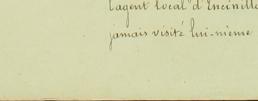 l'agent local d'Encinillas
jamais visité lui-même